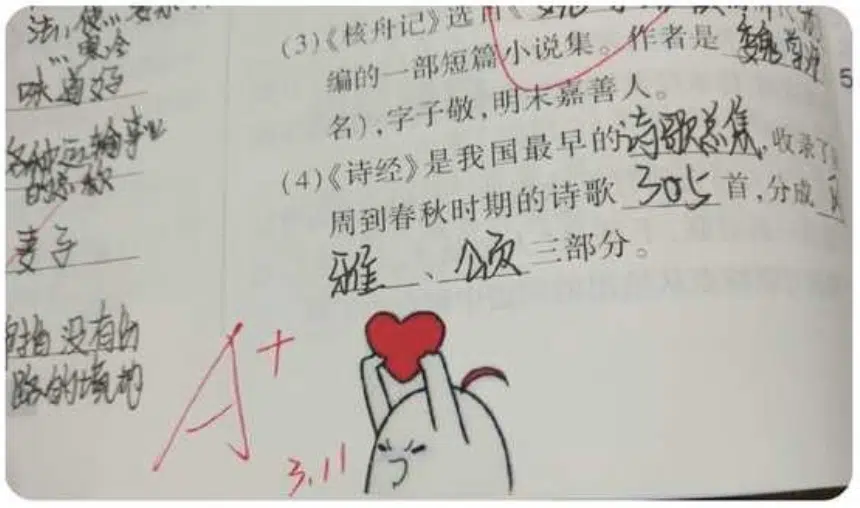 法,使
味道好
麦子
没有出
路的境地
(3)《核舟记》选自《
编的一部短篇小说集。作者是 魏学洢
名),字子敬,明末嘉善人。
(4)《诗经》是我国最早的诗歌总集,收录了
周到春秋时期的诗歌 305 首,分成
雅、颂三部分。
5
A+
3.11